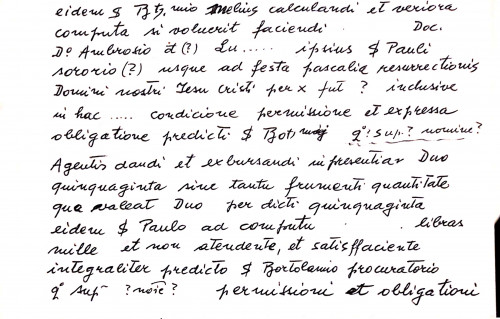 eidem $ Bʒ, mio melius calculandi et veriora
computa si volucrit faciendi . Doc.
D.º Ambrosio et (?) Lu ...... ipsius $ Pauli
sororio (?) usque ad festa pascalia resurrectionis
Domini nostri Iesu Cristi per x fut ? inclusive
in hac ..... condicione permissione et expressa
obligatione predicti $ Bot, mig qº: sup.? nomine?
Agentis dandi et exbursandi in presentiar Duo
quinquaginta sine tantu frumenti quantitate
qua valeat Duo per dicti quinquaginta
eidem $ Paulo ad computu . libras
mille et non atendente, et satisffaciente
integraliter predicto $ Bortolamio procuratorio
qº sup ? noie ? permissioni et obligationi